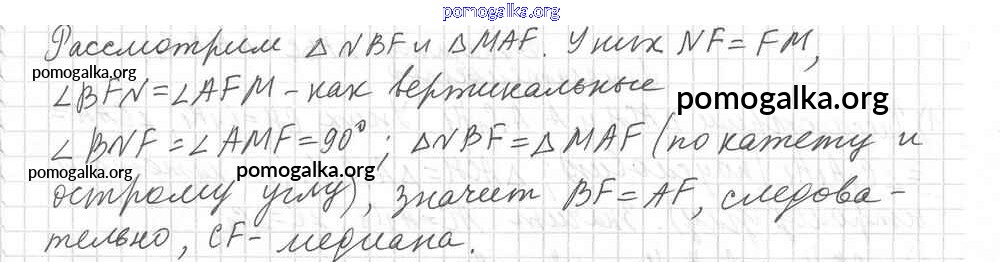 pomogalka.org
Рассмотрим △NBF и △MAF. У них NF = FM,
pomogalka.org
∠BFN = ∠AFM - как вертикальные
pomogalka.org
∠BNF = ∠AMF = 90°; △NBF = △MAF (по катету и
pomogalka.org pomogalka.org
острому углу), значит BF = AF, следова-
тельно, CF - медиана.